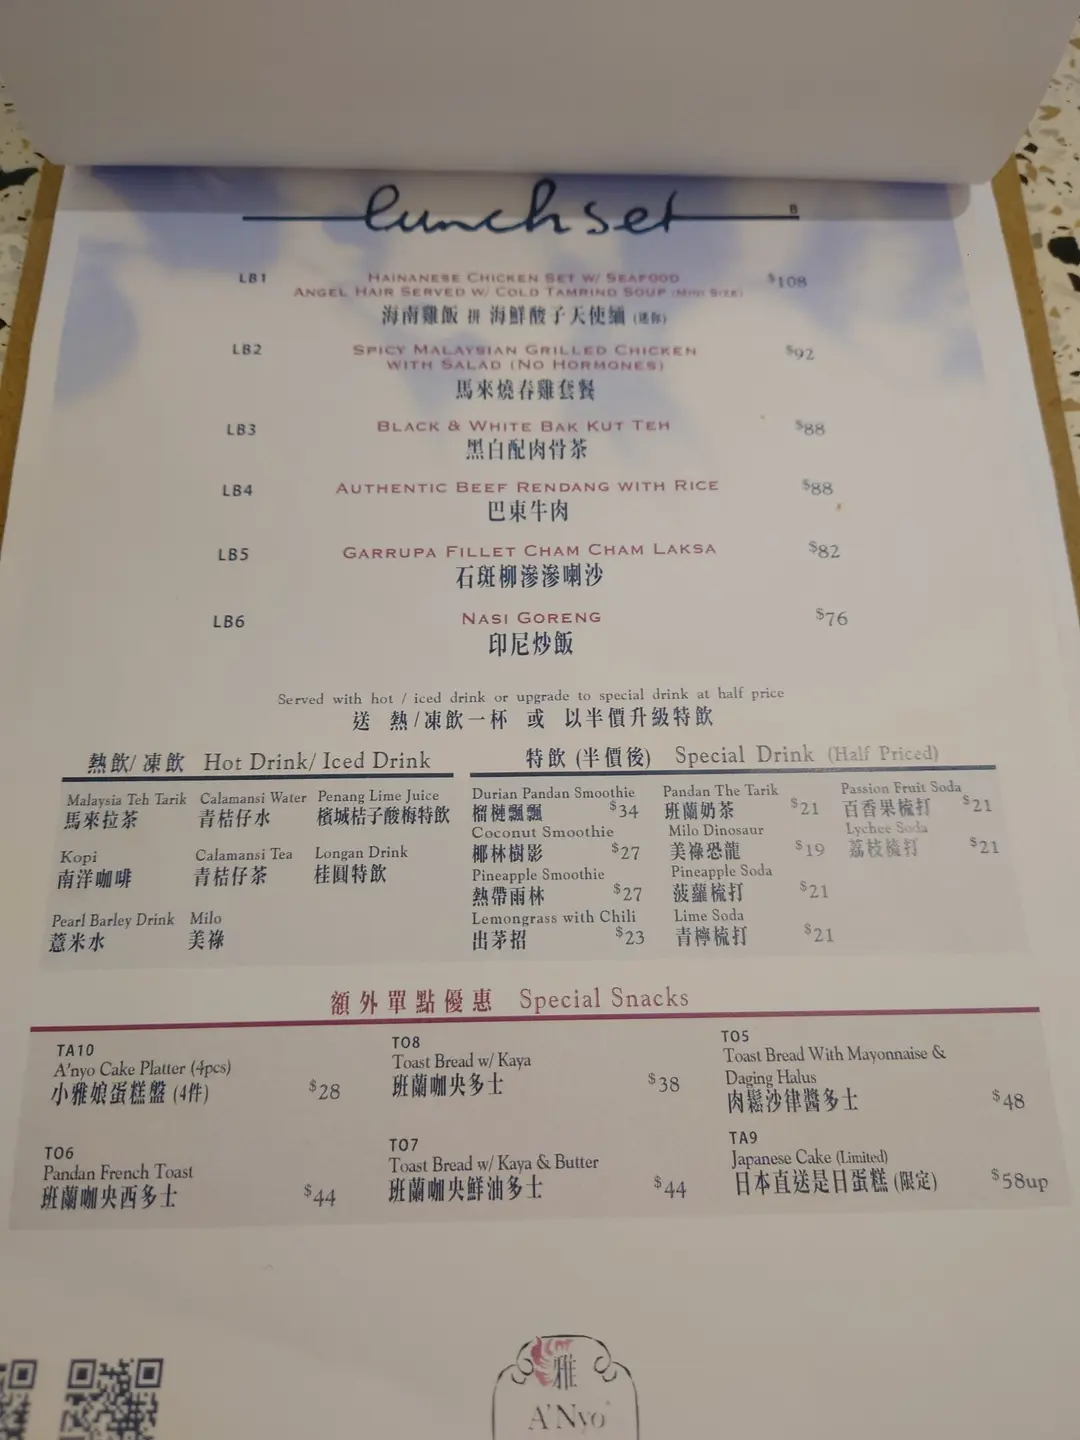 lunch set
B
LB1 HAINANESE CHICKEN SET W/ SEAFOOD $108
ANGEL HAIR SERVED W/ COLD TAMRIND SOUP (MINI SIZE)
海南雞飯 拼 海鮮酸子天使麵 (迷你)
LB2 SPICY MALAYSIAN GRILLED CHICKEN $92
WITH SALAD (NO HORMONES)
馬來燒春雞套餐
LB3 BLACK & WHITE BAK KUT TEH $88
黑白配肉骨茶
LB4 AUTHENTIC BEEF RENDANG WITH RICE $88
巴東牛肉
LB5 GARRUPA FILLET CHAM CHAM LAKSA $82
石斑柳滲滲喇沙
LB6 NASI GORENG $76
印尼炒飯
Served with hot / iced drink or upgrade to special drink at half price
送 熱/凍飲一杯 或 以半價升級特飲
熱飲/凍飲 Hot Drink/ Iced Drink
Malaysia Teh Tarik Calamansi Water Penang Lime Juice
馬來拉茶 青桔仔水 檳城桔子酸梅特飲
Kopi Calamansi Tea Longan Drink
南洋咖啡 青桔仔茶 桂圓特飲
Pearl Barley Drink Milo
薏米水 美祿
特飲 (半價後) Special Drink (Half Priced)
Durian Pandan Smoothie
榴槤飄飄 $34
Coconut Smoothie
椰林樹影 $27
Pineapple Smoothie
熱帶雨林 $27
Lemongrass with Chili
出茅招 $23
Pandan The Tarik
班蘭奶茶 $21
Milo Dinosaur
美祿恐龍 $19
Pineapple Soda
菠蘿梳打 $21
Lime Soda
青檸梳打 $21
Passion Fruit Soda
百香果梳打 $21
Lychee Soda
荔枝梳打 $21
額外單點優惠 Special Snacks
TA10
A'nyo Cake Platter (4pcs)
小雅娘蛋糕盤 (4件) $28
TO8
Toast Bread w/ Kaya
班蘭咖央多士 $38
TO5
Toast Bread With Mayonnaise &
Daging Halus
肉鬆沙律醬多士 $48
TO6
Pandan French Toast
班蘭咖央西多士 $44
TO7
Toast Bread w/ Kaya & Butter
班蘭咖央鮮油多士 $44
TA9
Japanese Cake (Limited)
日本直送是日蛋糕 (限定) $58up
雅
A'Nyo